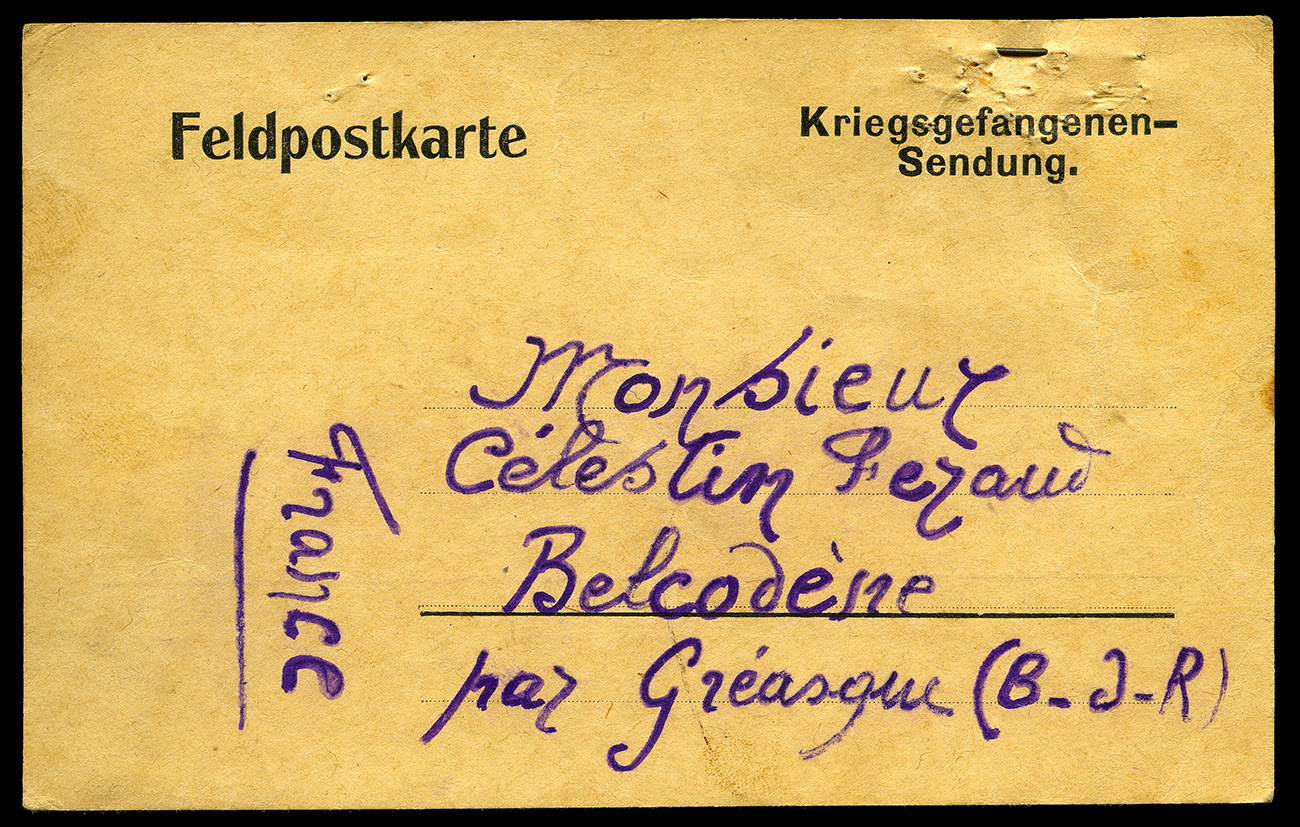 Feldpostkarte
Kriegsgefangenen-
Sendung.
Monsieur
Célestin Feraud
Belcodène
par Gréasque (B-d-R)
France